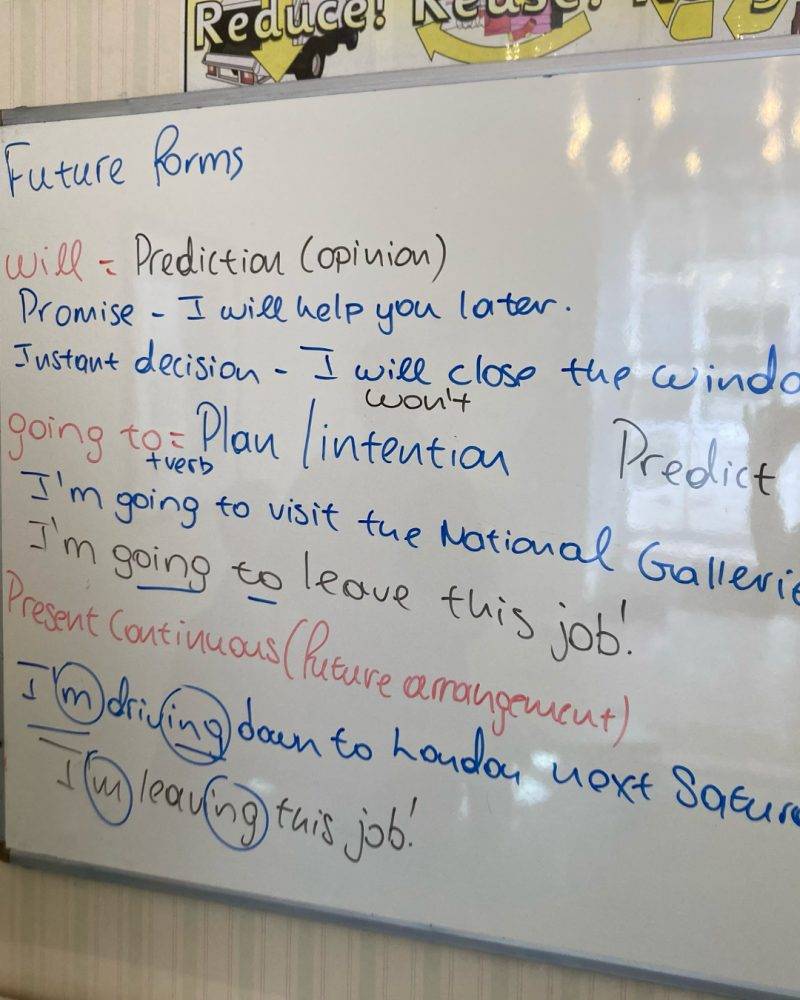 Reduce! Reuse!
Future forms
will = Prediction (opinion)
Promise - I will help you later.
Instant decision - I will close the windo
won't
going to = Plan / intention Predict
+verb
I'm going to visit the National Gallerie
I'm going to leave this job!
Present Continuous (future arrangement)
I'm driving down to London next Satur
I'm leaving this job!